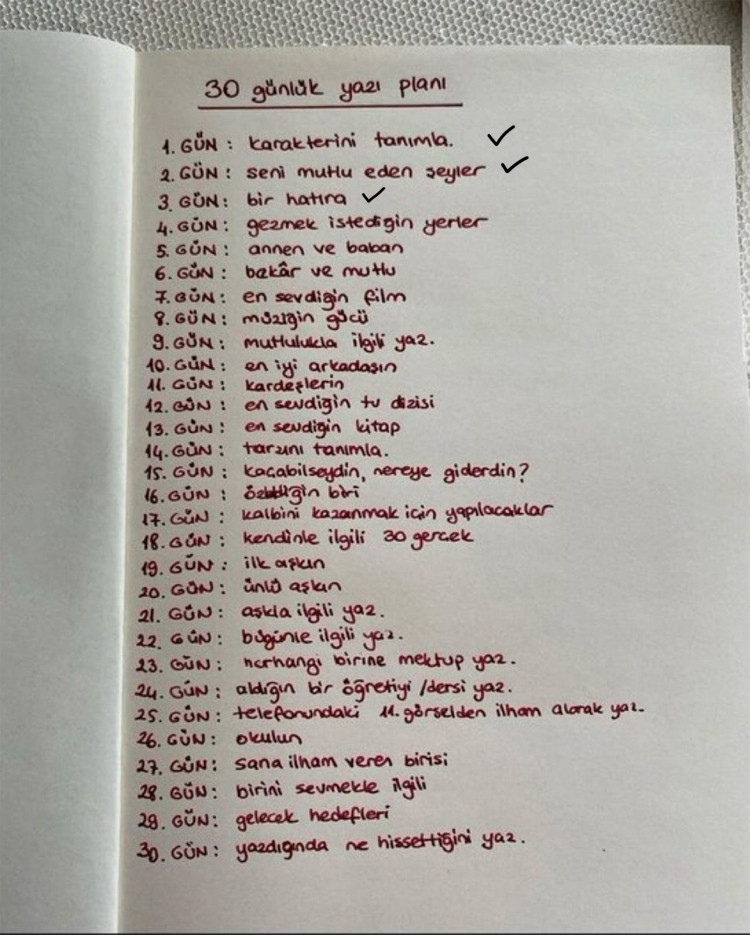 30 günlük yazı planı
1. GÜN : karakterini tanımla. ✓
2. GÜN : seni mutlu eden şeyler ✓
3. GÜN : bir hatıra ✓
4. GÜN : gezmek istediğin yerler
5. GÜN : annen ve baban
6. GÜN : bekâr ve mutlu
7. GÜN : en sevdiğin film
8. GÜN : müziğin gücü
9. GÜN : mutlulukla ilgili yaz.
10. GÜN : en iyi arkadaşın
11. GÜN : kardeşlerin
12. GÜN : en sevdiğin tv dizisi
13. GÜN : en sevdiğin kitap
14. GÜN : tarzını tanımla.
15. GÜN : kaçabilseydin, nereye giderdin?
16. GÜN : özlediğin biri
17. GÜN : kalbini kazanmak için yapılacaklar
18. GÜN : kendinle ilgili 30 gerçek
19. GÜN : ilk aşkın
20. GÜN : ünlü aşkın
21. GÜN : aşkla ilgili yaz.
22. GÜN : bugünle ilgili yaz.
23. GÜN : herhangi birine mektup yaz.
24. GÜN : aldığın bir öğretiyi /dersi yaz.
25. GÜN : telefonundaki 11. görselden ilham alarak yaz.
26. GÜN : okulun
27. GÜN : sana ilham veren birisi
28. GÜN : birini sevmekle ilgili
29. GÜN : gelecek hedefleri
30. GÜN : yazdığında ne hissettiğini yaz.